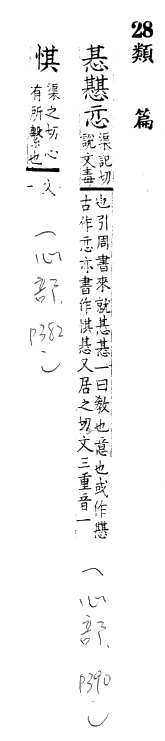 28類篇
惎𢡆㤅 渠記切說文毒也引周書來就惎惎一曰敎也意也或作𢡆
古作㤅亦書作惎又居之切文三重音一
(心部 p390)
惎 渠之切心有所繫也文一
(心部 p382)